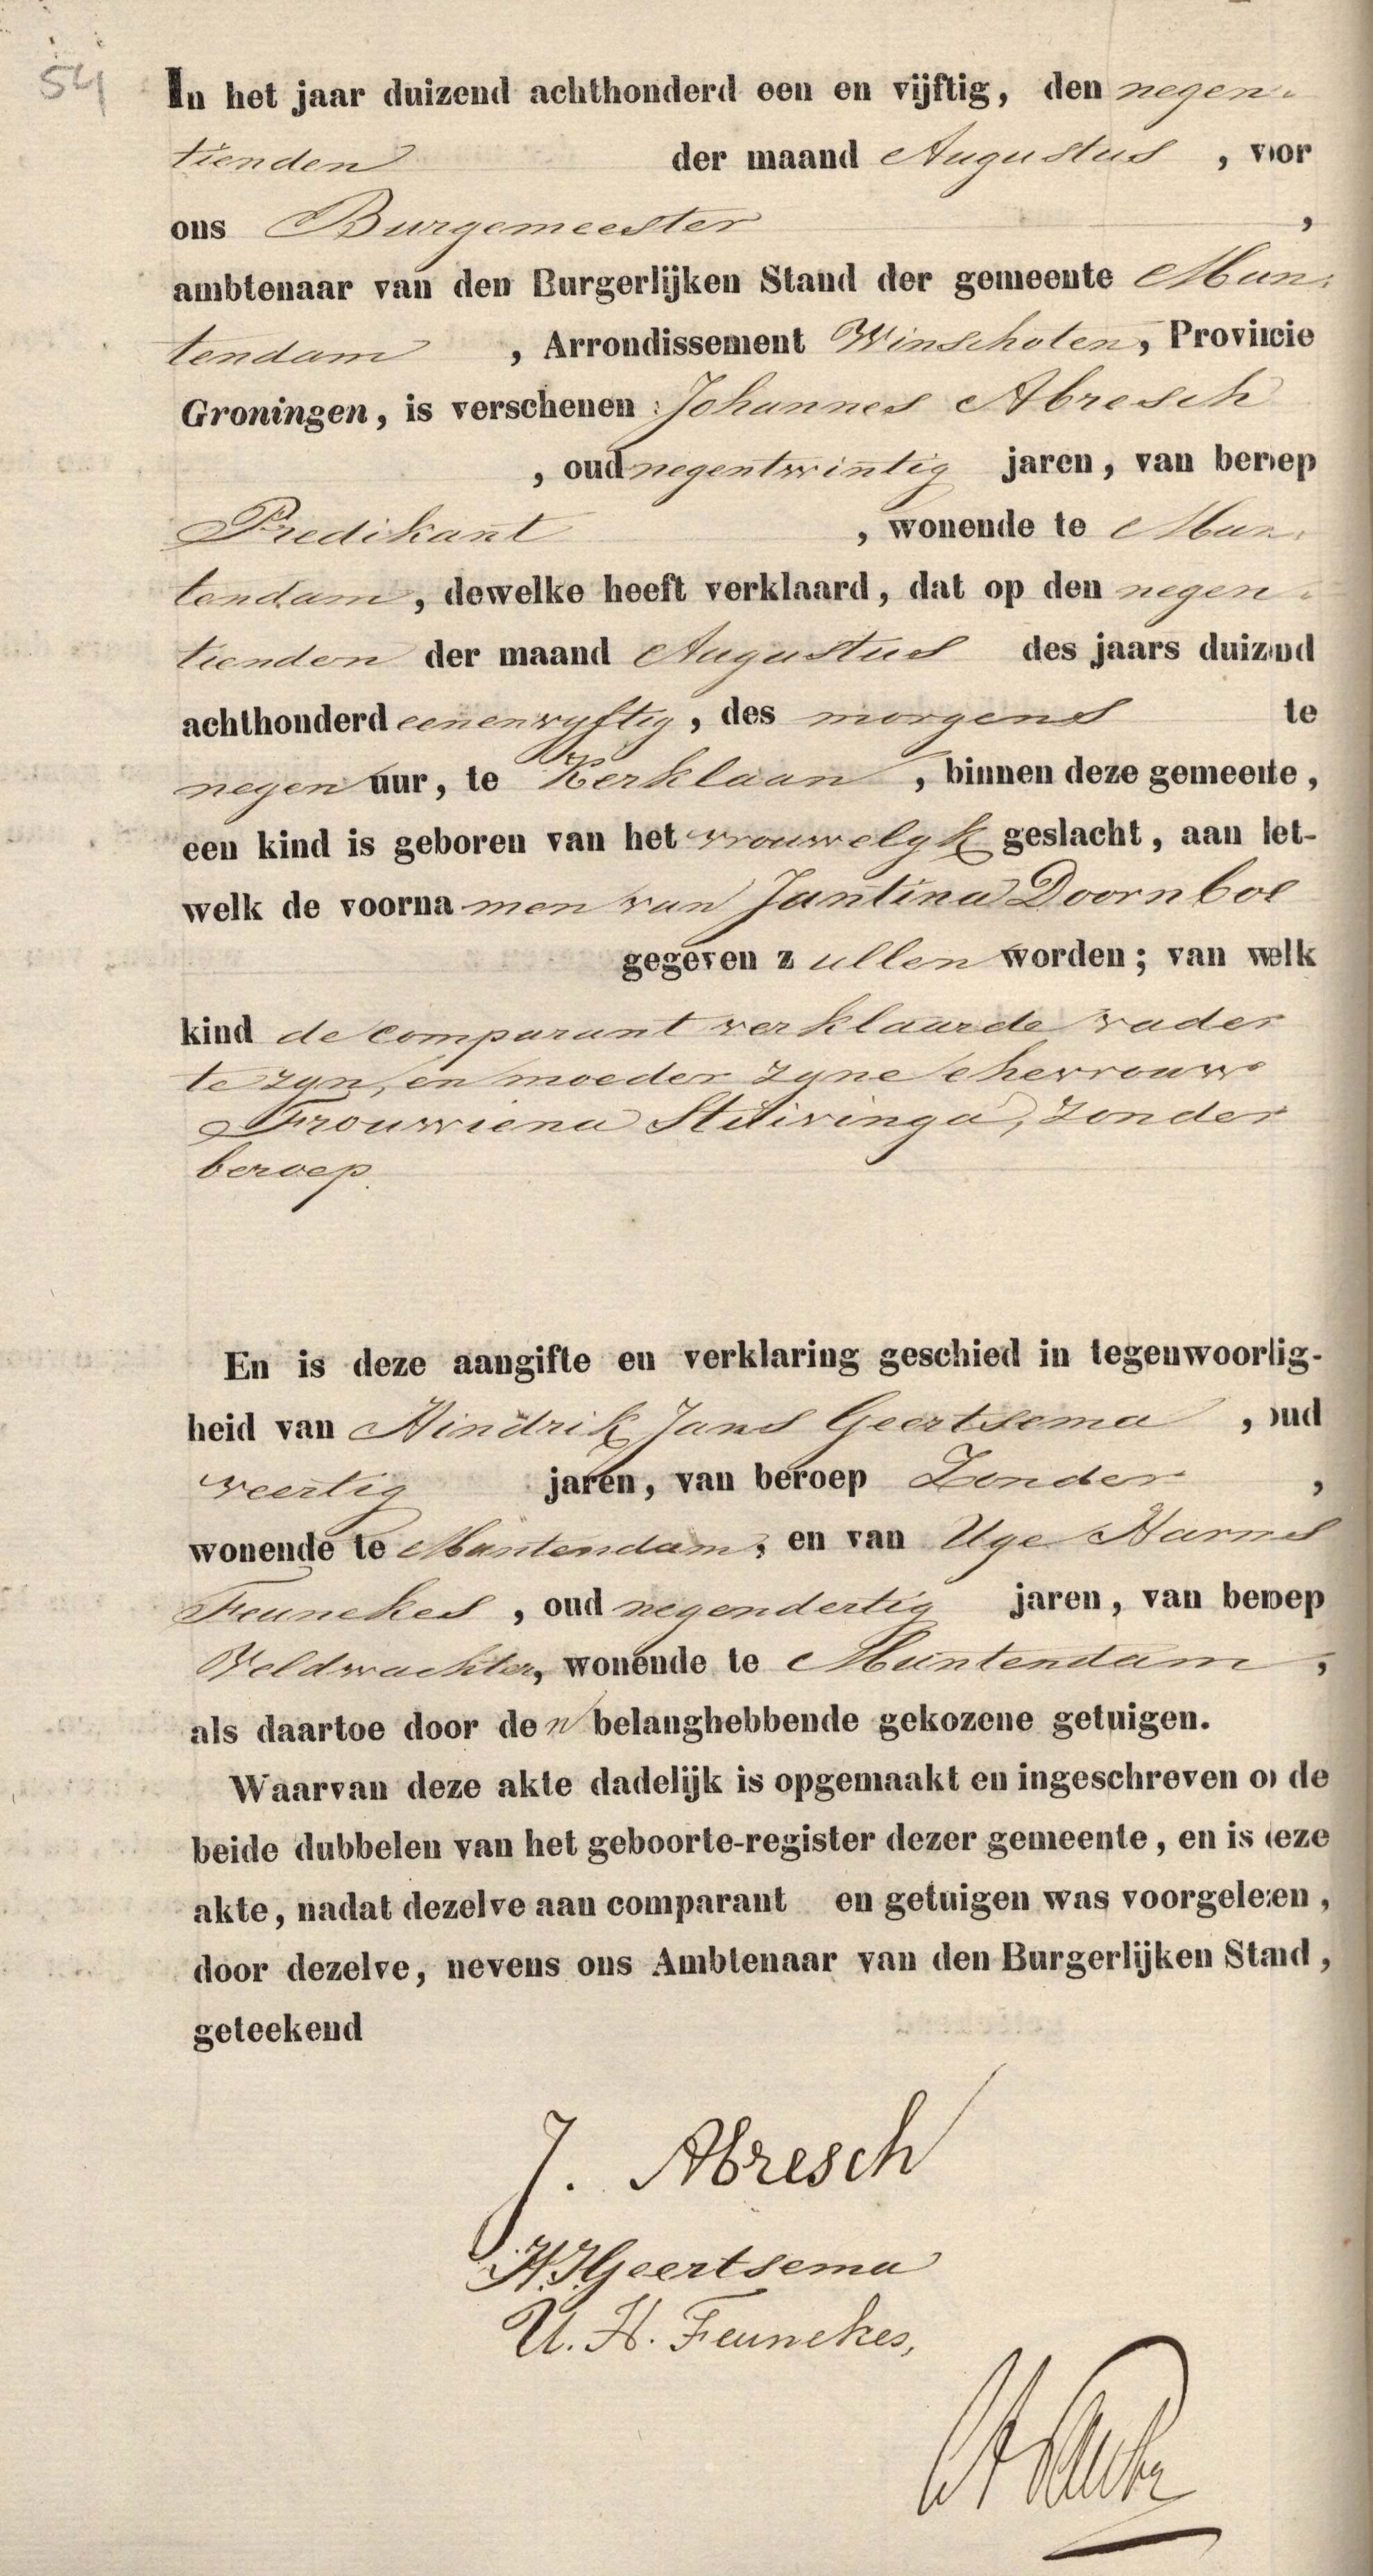 54
In het jaar duizend achthonderd een en vijftig, den negen-
tienden der maand Augustus , voor
ons Burgemeester ,
ambtenaar van den Burgerlijken Stand der gemeente Mun-
tendam , Arrondissement Winschoten, Provincie
Groningen, is verschenen : Johannes Abresch
, oud negentwintig jaren, van beroep
Predikant , wonende te Mun-
tendam, dewelke heeft verklaard, dat op den negen-
tienden der maand Augustus des jaars duizend
achthonderd eenenvyftig, des morgens te
negen uur, te Kerklaan , binnen deze gemeente,
een kind is geboren van het vrouwelyk geslacht, aan het-
welk de voornamen van Jantina Doornbos
gegeven zullen worden; van welk
kind de comparant verklaarde vader
te zyn, en moeder zyne ehevrouw
Frouwiena Stuivinga, zonder
beroep.
En is deze aangifte en verklaring geschied in tegenwoordig-
heid van Hindrik Jans Geertsema , oud
veertig jaren, van beroep Zonder ,
wonende te Muntendam, en van Uge Harms
Feunekes , oud negendertig jaren, van beroep
Veldwachter, wonende te Muntendam ,
als daartoe door den belanghebbende gekozene getuigen.
Waarvan deze akte dadelijk is opgemaakt en ingeschreven op de
beide dubbelen van het geboorte-register dezer gemeente, en is deze
akte, nadat dezelve aan comparant en getuigen was voorgelezen,
door dezelve, nevens ons Ambtenaar van den Burgerlijken Stand,
geteekend
J. Abresch
H.J. Geertsema
U. H. Feunekes,